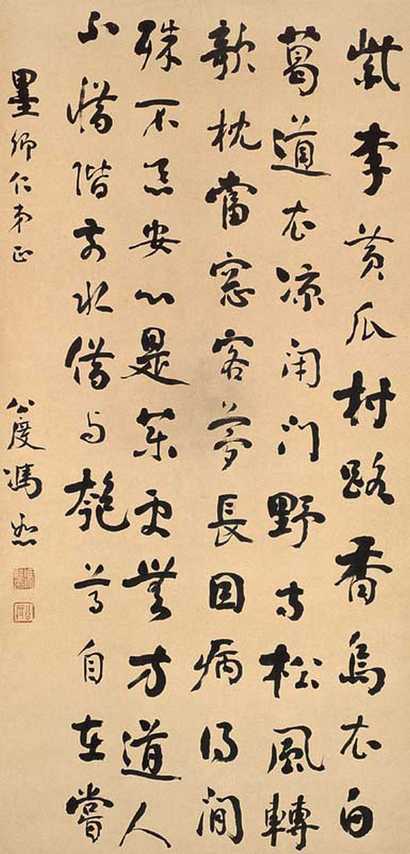 紫李黃瓜村路香烏衣白
葛道衣涼閉門野寺松風轉
欹枕當窓客夢長因病得閒
殊不惡安心是藥更無方道人
不惜階前水借与匏尊自在嘗
墨卿仁弟正
公度馮恕